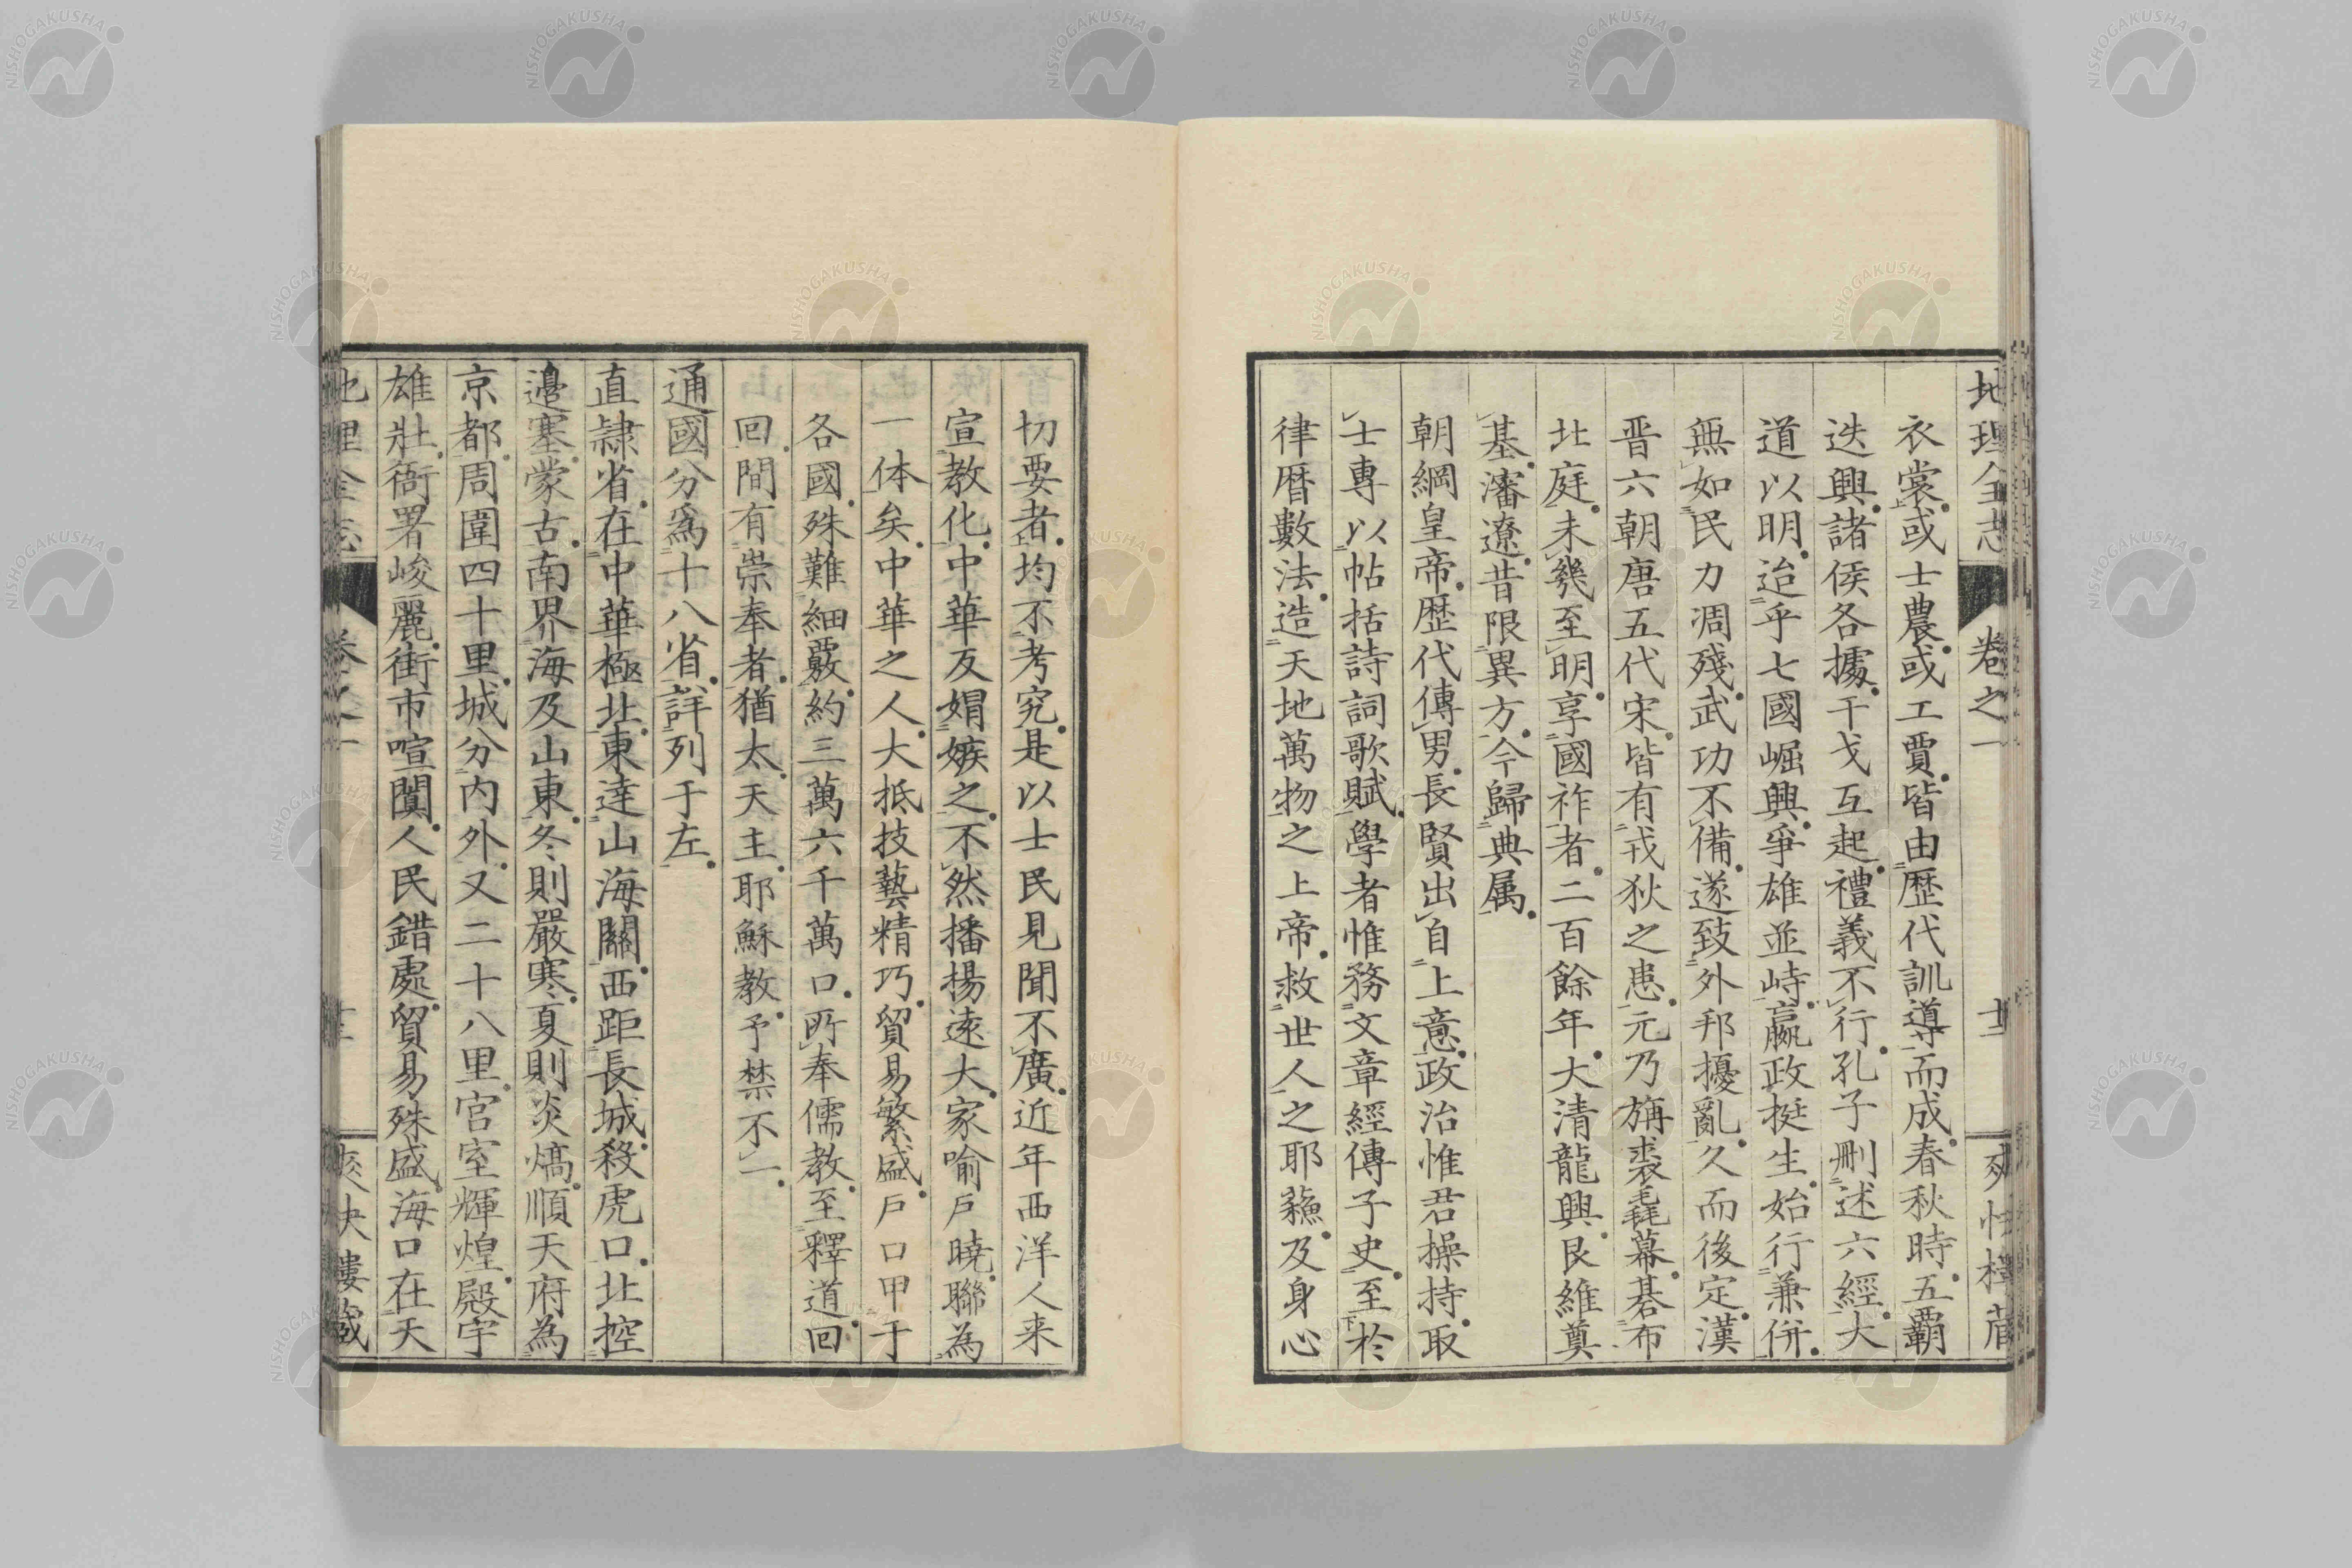 地理全志 卷之一
衣裳或士農或工賈皆由歷代訓導而成春秋時五覇
迭興諸侯各據干戈互起禮義不行孔子刪述六經大
道以明迨乎七國崛興爭雄並峙嬴政挺生始行兼併
無如民力凋殘武功不備遂致外邦擾亂久而後定漢
晋六朝唐五代宋皆有戎狄之患元乃旃裘毳幕碁布
北庭未幾至明享國祚者二百餘年大清龍興艮維奠
基瀋遼昔限異方今歸典属
朝綱皇帝歴代傳男長賢出自上意政治惟君操持取
士專以帖括詩詞歌賦學者惟務文章經傳子史至於
律暦數法造天地萬物之上帝救世人之耶蘓及身心
切要者均不考究是以士民見聞不廣近年西洋人来
宣教化中華反媢嫉之不然播揚遠大家喻戶曉聯為
一体矣中華之人大抵技藝精巧貿易繁盛戶口甲于
各國殊難細覈約三萬六千萬口所奉儒教至釋道回
回間有崇奉者猶太天主耶穌教予禁不一
通國分爲十八省詳列于左
直隷省在中華極北東達山海關西距長城殺虎口北控
邉塞蒙古南界海及山東冬則嚴寒夏則炎熇順天府為
京都周圍四十里城分内外又二十八里宮室輝煌殿宇
雄壯衙署峻麗街市喧闐人民錯處貿易殊盛海口在天
地理全志 卷之一 爽快樓蔵